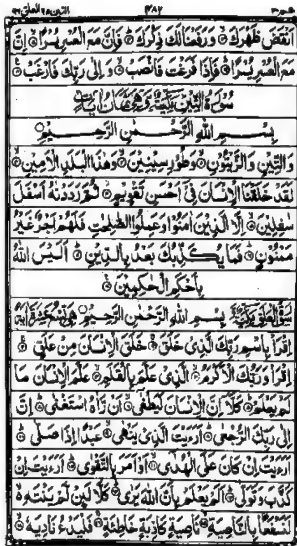 عم ٣٠ ٤٨٢ التين ٩٥ العلق ٩٦
اَنْقَضَ ظَهْرَكَ ۝ وَرَفَعْنَا لَكَ ذِكْرَكَ ۝ فَاِنَّ مَعَ الْعُسْرِ يُسْرًا ۝ اِنَّ
مَعَ الْعُسْرِ يُسْرًا ۝ فَاِذَا فَرَغْتَ فَانْصَبْ ۝ وَاِلٰى رَبِّكَ فَارْغَبْ ۝
سُوْرَةُ التِّيْنِ مَكِّيَّةٌ وَهِيَ ثَمَانُ اٰيَاتٍ
بِسْمِ اللّٰهِ الرَّحْمٰنِ الرَّحِيْمِ ۝
وَالتِّيْنِ وَالزَّيْتُوْنِ ۝ وَطُوْرِ سِيْنِيْنَ ۝ وَهٰذَا الْبَلَدِ الْاَمِيْنِ ۝
لَقَدْ خَلَقْنَا الْاِنْسَانَ فِيْٓ اَحْسَنِ تَقْوِيْمٍ ۝ ثُمَّ رَدَدْنٰهُ اَسْفَلَ
سٰفِلِيْنَ ۝ اِلَّا الَّذِيْنَ اٰمَنُوْا وَعَمِلُوا الصّٰلِحٰتِ فَلَهُمْ اَجْرٌ غَيْرُ
مَمْنُوْنٍ ۝ فَمَا يُكَذِّبُكَ بَعْدُ بِالدِّيْنِ ۝ اَلَيْسَ اللّٰهُ
بِاَحْكَمِ الْحٰكِمِيْنَ ۝
سُوْرَةُ الْعَلَقِ مَكِّيَّةٌ بِسْمِ اللّٰهِ الرَّحْمٰنِ الرَّحِيْمِ ۝ وَهِيَ تِسْعَ عَشَرَةَ اٰيَةً
اِقْرَاْ بِاسْمِ رَبِّكَ الَّذِيْ خَلَقَ ۝ خَلَقَ الْاِنْسَانَ مِنْ عَلَقٍ ۝
اِقْرَاْ وَرَبُّكَ الْاَكْرَمُ ۝ الَّذِيْ عَلَّمَ بِالْقَلَمِ ۝ عَلَّمَ الْاِنْسَانَ مَا
لَمْ يَعْلَمْ ۝ كَلَّآ اِنَّ الْاِنْسَانَ لَيَطْغٰٓى ۝ اَنْ رَّاٰهُ اسْتَغْنٰى ۝ اِنَّ
اِلٰى رَبِّكَ الرُّجْعٰى ۝ اَرَءَيْتَ الَّذِيْ يَنْهٰى ۝ عَبْدًا اِذَا صَلّٰى ۝
اَرَءَيْتَ اِنْ كَانَ عَلَى الْهُدٰٓى ۝ اَوْ اَمَرَ بِالتَّقْوٰى ۝ اَرَءَيْتَ اِنْ
كَذَّبَ وَتَوَلّٰى ۝ اَلَمْ يَعْلَمْ بِاَنَّ اللّٰهَ يَرٰى ۝ كَلَّا لَئِنْ لَّمْ يَنْتَهِ ۝
لَنَسْفَعًۢا بِالنَّاصِيَةِ ۝ نَاصِيَةٍ كَاذِبَةٍ خَاطِئَةٍ ۝ فَلْيَدْعُ نَادِيَهٗ ۝